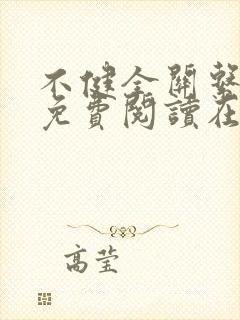 不健全關繫
免費閱讀在
高莹